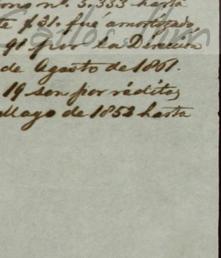 nº. 3,333 hasta
$31. fué amortizado
91 por la Dirección
de Agosto de 1861.
19 son por réditos
Mayo de 1852 hasta